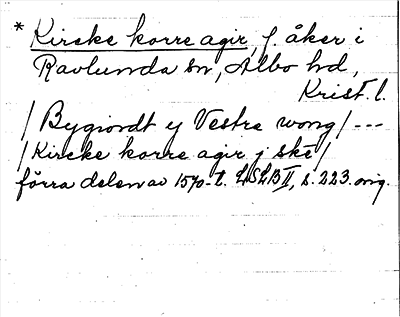 * Kircke korre agir, f. åker i
Ravlunda sn, Albo hd,
Krist. l.
/ Bygiordt ey Vestre wong / ---
/ Kircke korre agir j skê /
förra delen av 1570-t. LSLB II, s. 223. orig.